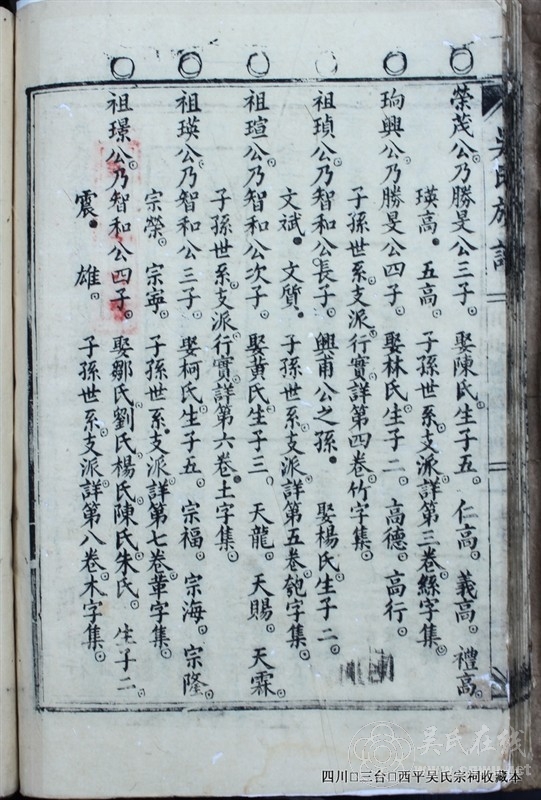 吳氏族譜
榮茂公乃勝旻公三子。娶陳氏生子五。仁高。義高。禮高。
瑛高。五高。子孫世系支派詳第三卷絲字集。
珦興公乃勝旻公四子。娶林氏生子二。高德。高行。
子孫世系支派行實詳第四卷竹字集。
祖瑱公乃智和公長子。興甫公之孫。娶楊氏生子二。
文斌。文質。子孫世系支派詳第五卷匏字集。
祖瑄公乃智和公次子。娶黃氏生子三。天龍。天賜。天霖。
子孫世系支派行實詳第六卷土字集。
祖瑛公乃智和公三子。娶柯氏生子五。宗福。宗海。宗隆。
宗榮。宗寧。子孫世系支派詳第七卷革字集。
祖璟公乃智和公四子。娶鄒氏劉氏楊氏陳氏朱氏。生子二。
震。雄。子孫世系支派詳第八卷木字集。
吴氏在线
四川□三台□西平吴氏宗祠收藏本